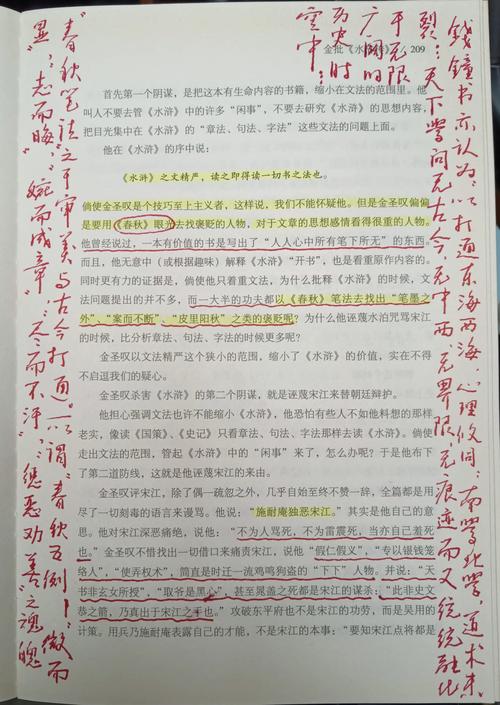 金批《水浒传》 209
首先第一个阴谋，是把本有生命内容的书籍，缩小在文法的范围里。他
叫人不要去管《水浒》中的许多“闲事”，不要去研究《水浒》的思想内容，
把目光集中在《水浒》的“章法、句法、字法”这些文法的问题上面。
他在《水浒》的序中说：
《水浒》之文精严，读之即得读一切书之法也。
倘使金圣叹是个技巧至上主义者，这样说，我们不能怀疑他。但是金圣叹偏偏
是要用《春秋》眼光去找褒贬的人物，对于文章的思想感情看得很重的人物。
他曾经说过，一本有价值的书是写出了“人人心中所有笔下所无”的东西。
而且，他无意中（或根据趣味）解释《水浒》“开书”，也是看重原作内容的。
同时更有力的证据是，倘使他只着重文法，为什么批释《水浒》的时候，文
法问题提出的并不多，而一大半的功夫都以《春秋》笔法去找出“笔墨之
外”、“案而不断”、“皮里阳秋”之类的褒贬呢？为什么他诬蔑水泊咒骂宋江
的时候，比分析章法、句法、字法的时候更多呢？
金圣叹以文法精严这个狭小的范围，缩小了《水浒》的价值，实在不得
不启逗我们的疑心。
金圣叹杀害《水浒》的第二个阴谋，就是诬蔑宋江来替朝廷辩护。
他担心强调文法也许不能缩小《水浒》，他恐怕有些人不如他料想的那样
老实，像读《国策》、《史记》只看章法、句法、字法那样去读《水浒》。倘使
走出文法的范围，管起《水浒》中的“闲事”来了，怎么办呢？于是他布下
了第二道防线，这就是他诬蔑宋江的来由。
金圣叹评宋江，除了偶一疏忽之外，几乎自始至终不赞一辞，全篇都是用
尽了一切刻毒的语言来谩骂。他说：“施耐庵独恶宋江。”其实是他自己的意
思。他对宋江深恶痛绝，说他：“不为人骂死，不为雷震死，当亦自己羞死
也。”金圣叹不惜找出一切借口来痛责宋江，说他“假仁假义”，“专以银钱笼
络人”，“使弄权术”，简直是时迁一流鸡鸣狗盗的“下下”人物。并说：“天
书非玄女所授”，“取爷是黑心”，甚至晁盖之死都是宋江的谋杀：“此非史文
恭之箭，乃真出于宋江之手也。”攻破东平府也不是宋江的功劳，而是吴用的
计策。用兵乃施耐庵表露自己的才能，不是宋江的本事：“要知宋江点将都是
钱锺书亦认为：以打通东海西海，心理攸同；南学北学，道术未
裂：天下学问无古今无中西，无界限，无痕迹而又统统融化
于无限
广阔的
历史时
空中：
“春秋笔法”之于审美与古今打通。以谓“春秋五例”：“微而
显”，“志而晦”，“婉而成章”，“尽而不汙”，“惩恶劝善”之魂魄